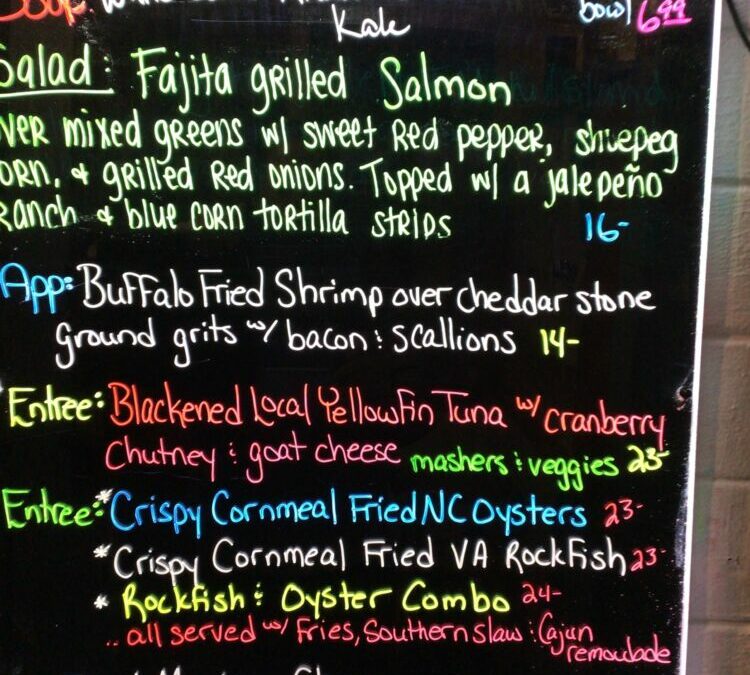 Soup:
Kale
bowl 6.99
Salad: Fajita grilled Salmon
over mixed greens w/ sweet Red pepper, shoepeg
corn, & grilled Red onions. Topped w/ a jalepeño
Ranch & blue corn tortilla strips 16-
App: Buffalo Fried Shrimp over cheddar stone
ground grits w/ bacon & scallions 14-
Entree: Blackened Local Yellowfin Tuna w/ cranberry
Chutney & goat cheese mashers & veggies 23-
Entree: *Crispy Cornmeal Fried NC Oysters 23-
*Crispy Cornmeal Fried VA Rockfish 23-
* Rockfish & Oyster Combo 24-
.. all served w/ Fries, Southern Slaw & Cajun
remoulade